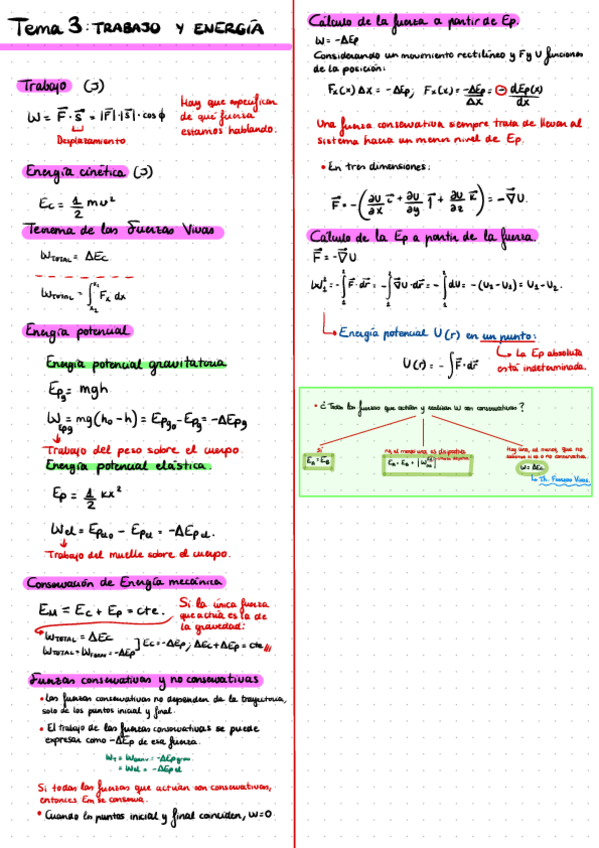 Tema 3: TRABAJO Y ENERGÍA
Trabajo (J)
W = F⃗ · s⃗ = |F⃗|·|s⃗|·cos ϕ
Desplazamiento
Hay que especificar
de qué fuerza
estamos hablando.
Energía cinética (J)
Ec = 1/2 mv²
Teorema de las Fuerzas Vivas
W_TOTAL = ΔEc
W_TOTAL = ∫ Fx dx
Energía potencial
Energía potencial gravitatoria
Epg = mgh
W_Epg = mg(h₀ - h) = Epg₀ - Epg = -ΔEpg
Trabajo del peso sobre el cuerpo
Energía potencial elástica.
Ep = 1/2 kx²
Wel = Epel₀ - Epel = -ΔEpel.
Trabajo del muelle sobre el cuerpo.
Conservación de Energía mecánica
EM = Ec + Ep = cte.
Si la única fuerza
que actúa es la de
la gravedad:
W_TOTAL = ΔEc
] Ec = -ΔEp; ΔEc + ΔEp = cte
Fuerzas conservativas y no conservativas
• Las fuerzas conservativas no dependen de la trayectoria,
solo de los puntos inicial y final.
• El trabajo de las fuerzas conservativas se puede
expresar como -ΔEp de esa fuerza.
= Wel = -ΔEpel
Si todas las fuerzas que actúan son conservativas,
entonces Em se conserva.
• Cuando los puntos inicial y final coinciden, W=0.
Cálculo de la fuerza a partir de Ep.
W = -ΔEp
Considerando un movimiento rectilíneo y F y U funciones
de la posición:
Fx(x) Δx = -ΔEp; Fx(x) = -ΔEp/Δx = - dEp(x)/dx
Una fuerza conservativa siempre trata de llevar al
sistema hacia un menor nivel de Ep.
• En tres dimensiones:
F⃗ = -(∂U/∂x i⃗ + ∂U/∂y j⃗ + ∂U/∂z k⃗) = -∇⃗U.
Cálculo de la Ep a partir de la fuerza.
F⃗ = -∇⃗U
∫₁² F⃗·dr⃗ = -∫₁² ∇⃗U·dr⃗ = -∫₁² dU = -(U₂ - U₁) = U₁ - U₂.
Energía potencial U(r) en un punto:
U(r) = -∫F⃗·dr⃗
La Ep absoluta
está indeterminada.
• ¿Todas las fuerzas que actúan y realizan W son conservativas?
Sí
No, al menos una es disipativa
Hay una, al menos, que no
sabemos si es o no conservativa.
EA = EB
W = ΔEc
Th. Fuerzas Vivas.